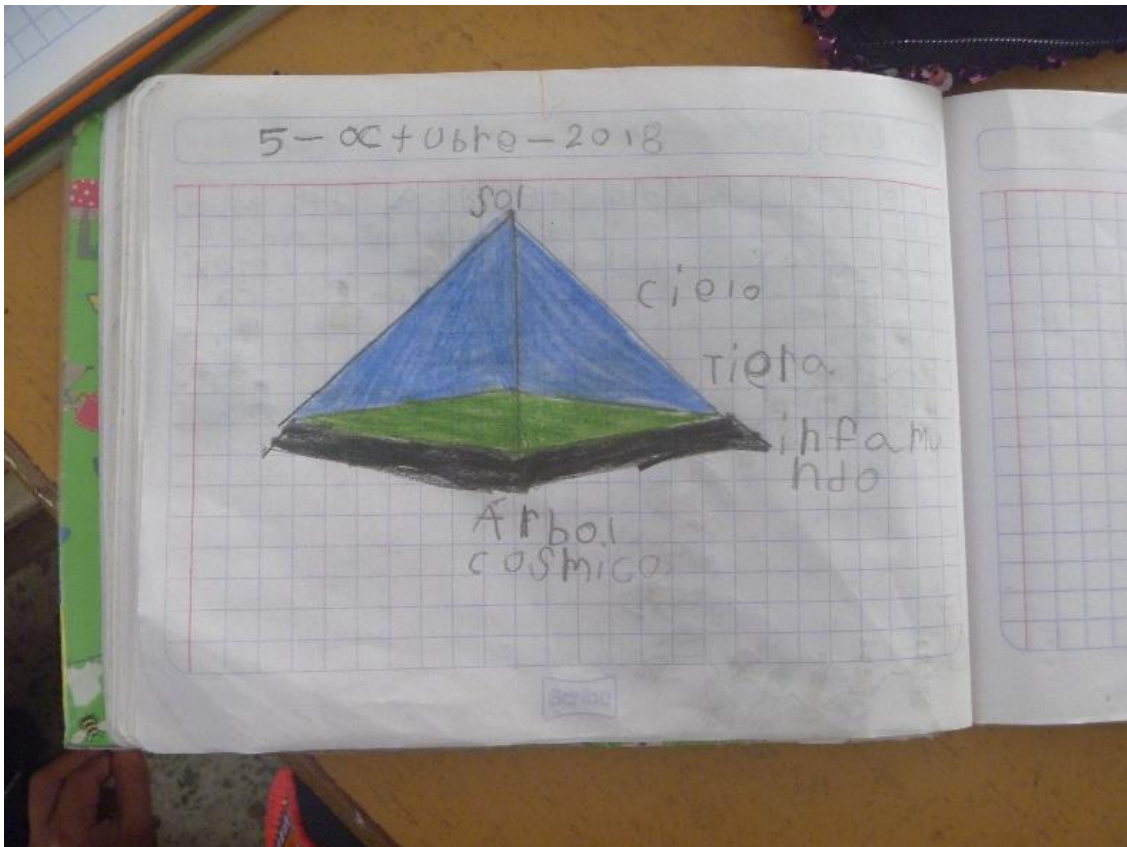 5-octubre-2018
sol
cielo
Tiera
infamu
ndo
Árbol
cosmico
Scribe